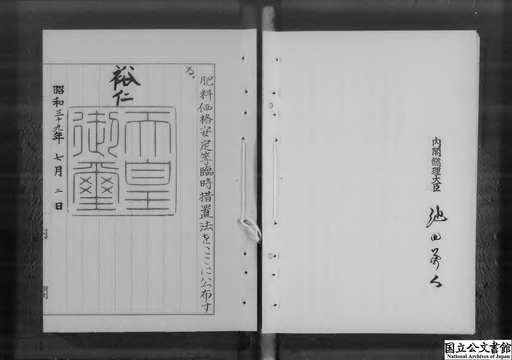 肥料価格安定等臨時措置法をここに公布す
る。
裕仁
天皇
御璽
昭和三十九年七月二日
内閣
内閣総理大臣
池田勇人
国立公文書館
National Archives of Japan